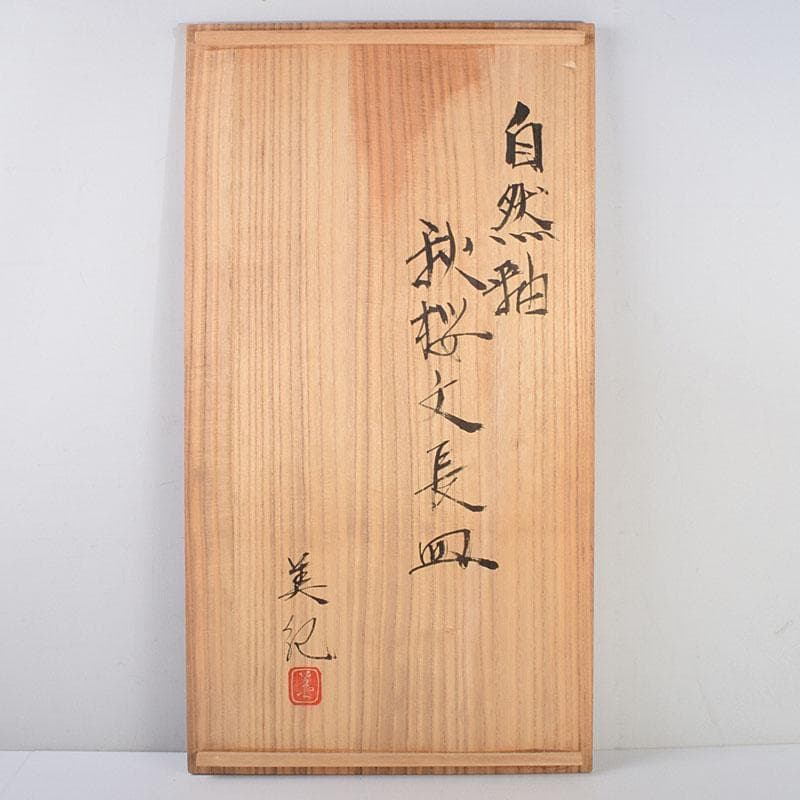 自然釉
秋桜文長皿
美紀